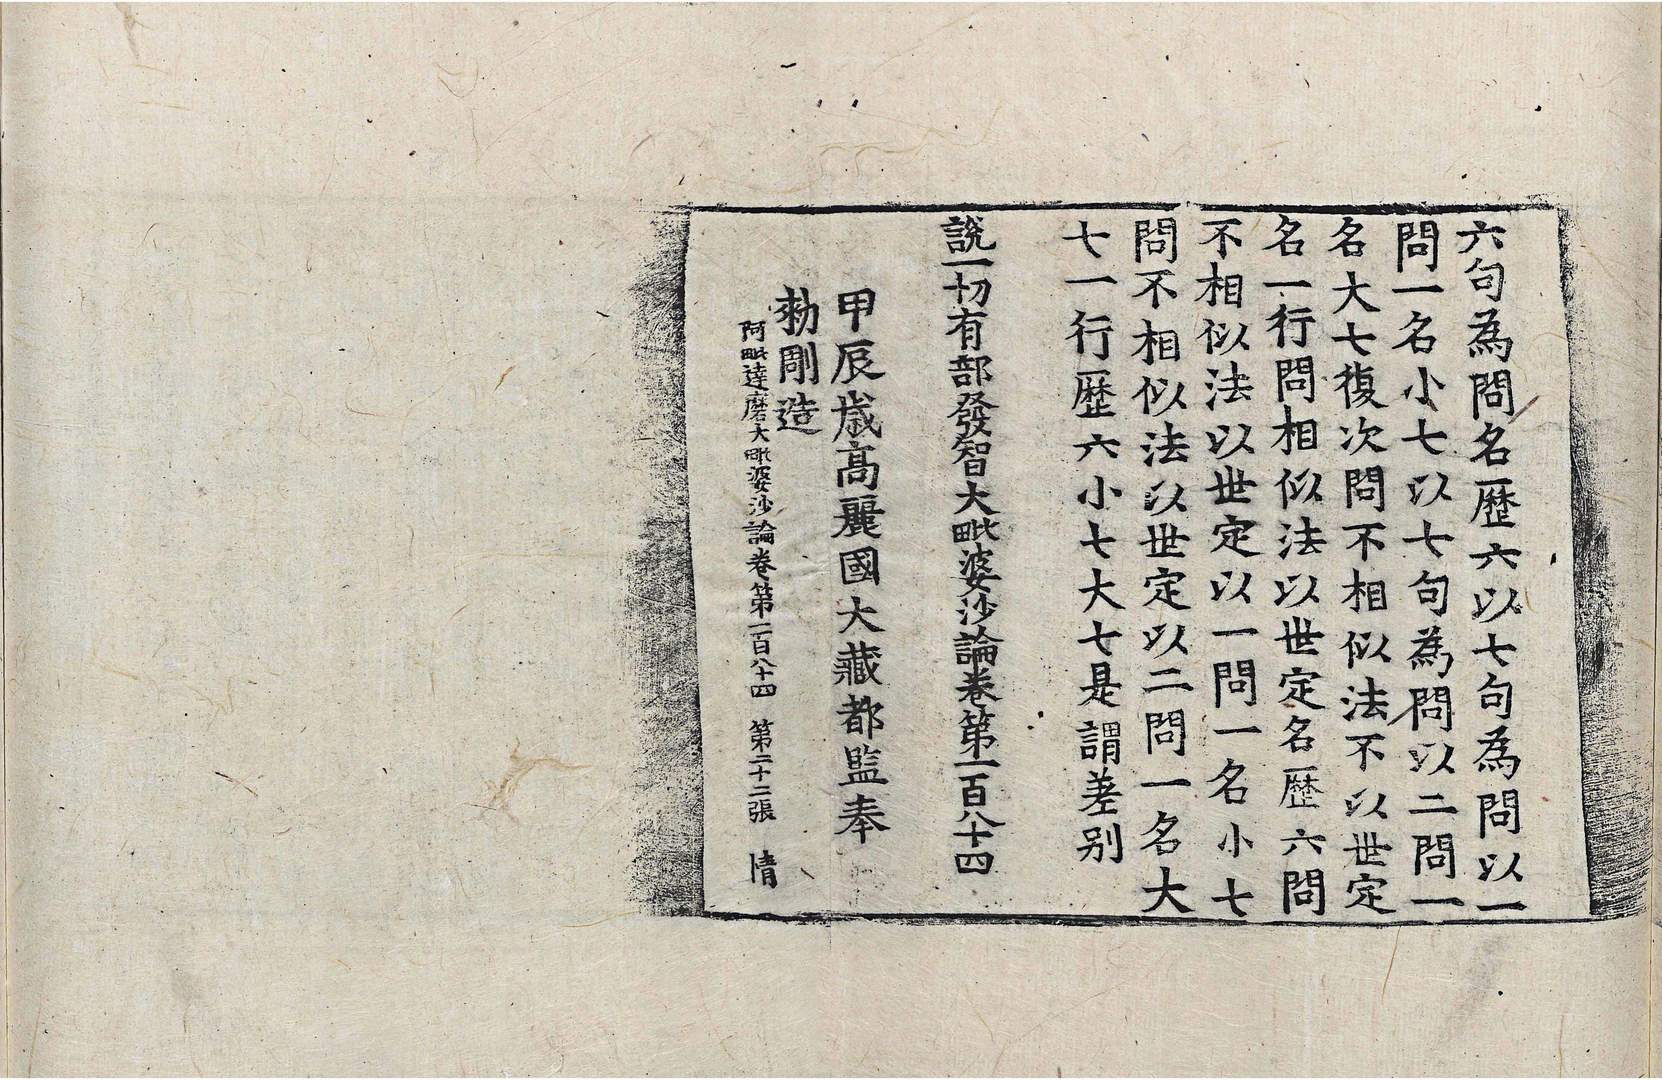 六句為問名歷六以七句為問以一
問一名小七以七句為問以二問一
名大七復次問不相似法不以世定
名一行問相似法以世定名歷六問
不相似法以世定以一問一名小七
問不相似法以世定以二問一名大
七一行歷六小七大七是謂差別
說一切有部發智大毗婆沙論卷第一百八十四
甲辰歲高麗國大藏都監奉
勑彫造
阿毗達磨大毗婆沙論卷第一百八十四 第二十二張 情